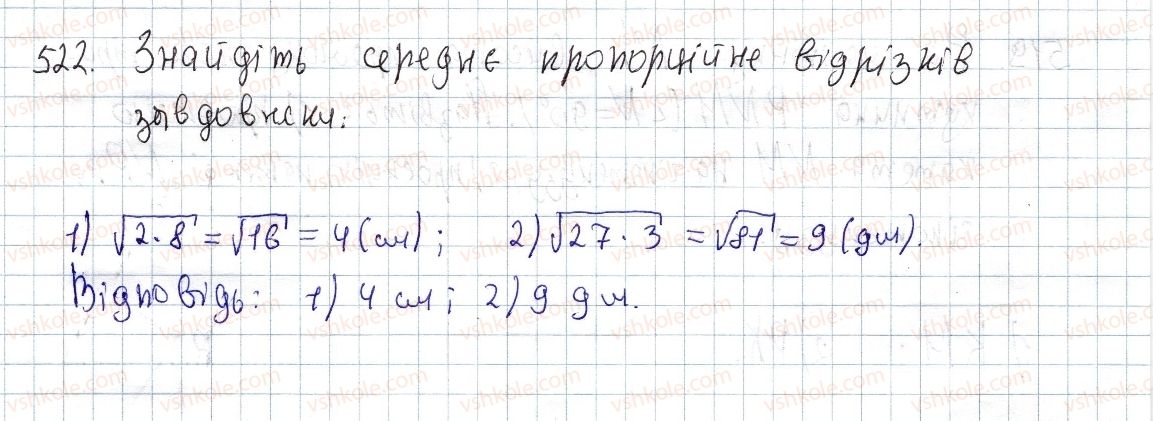 522. Знайдіть середнє пропорційне відрізків
завдовжки:
1) √2·8 = √16 = 4 (см); 2) √27·3 = √81 = 9 (дм).
Відповідь: 1) 4 см; 2) 9 дм.